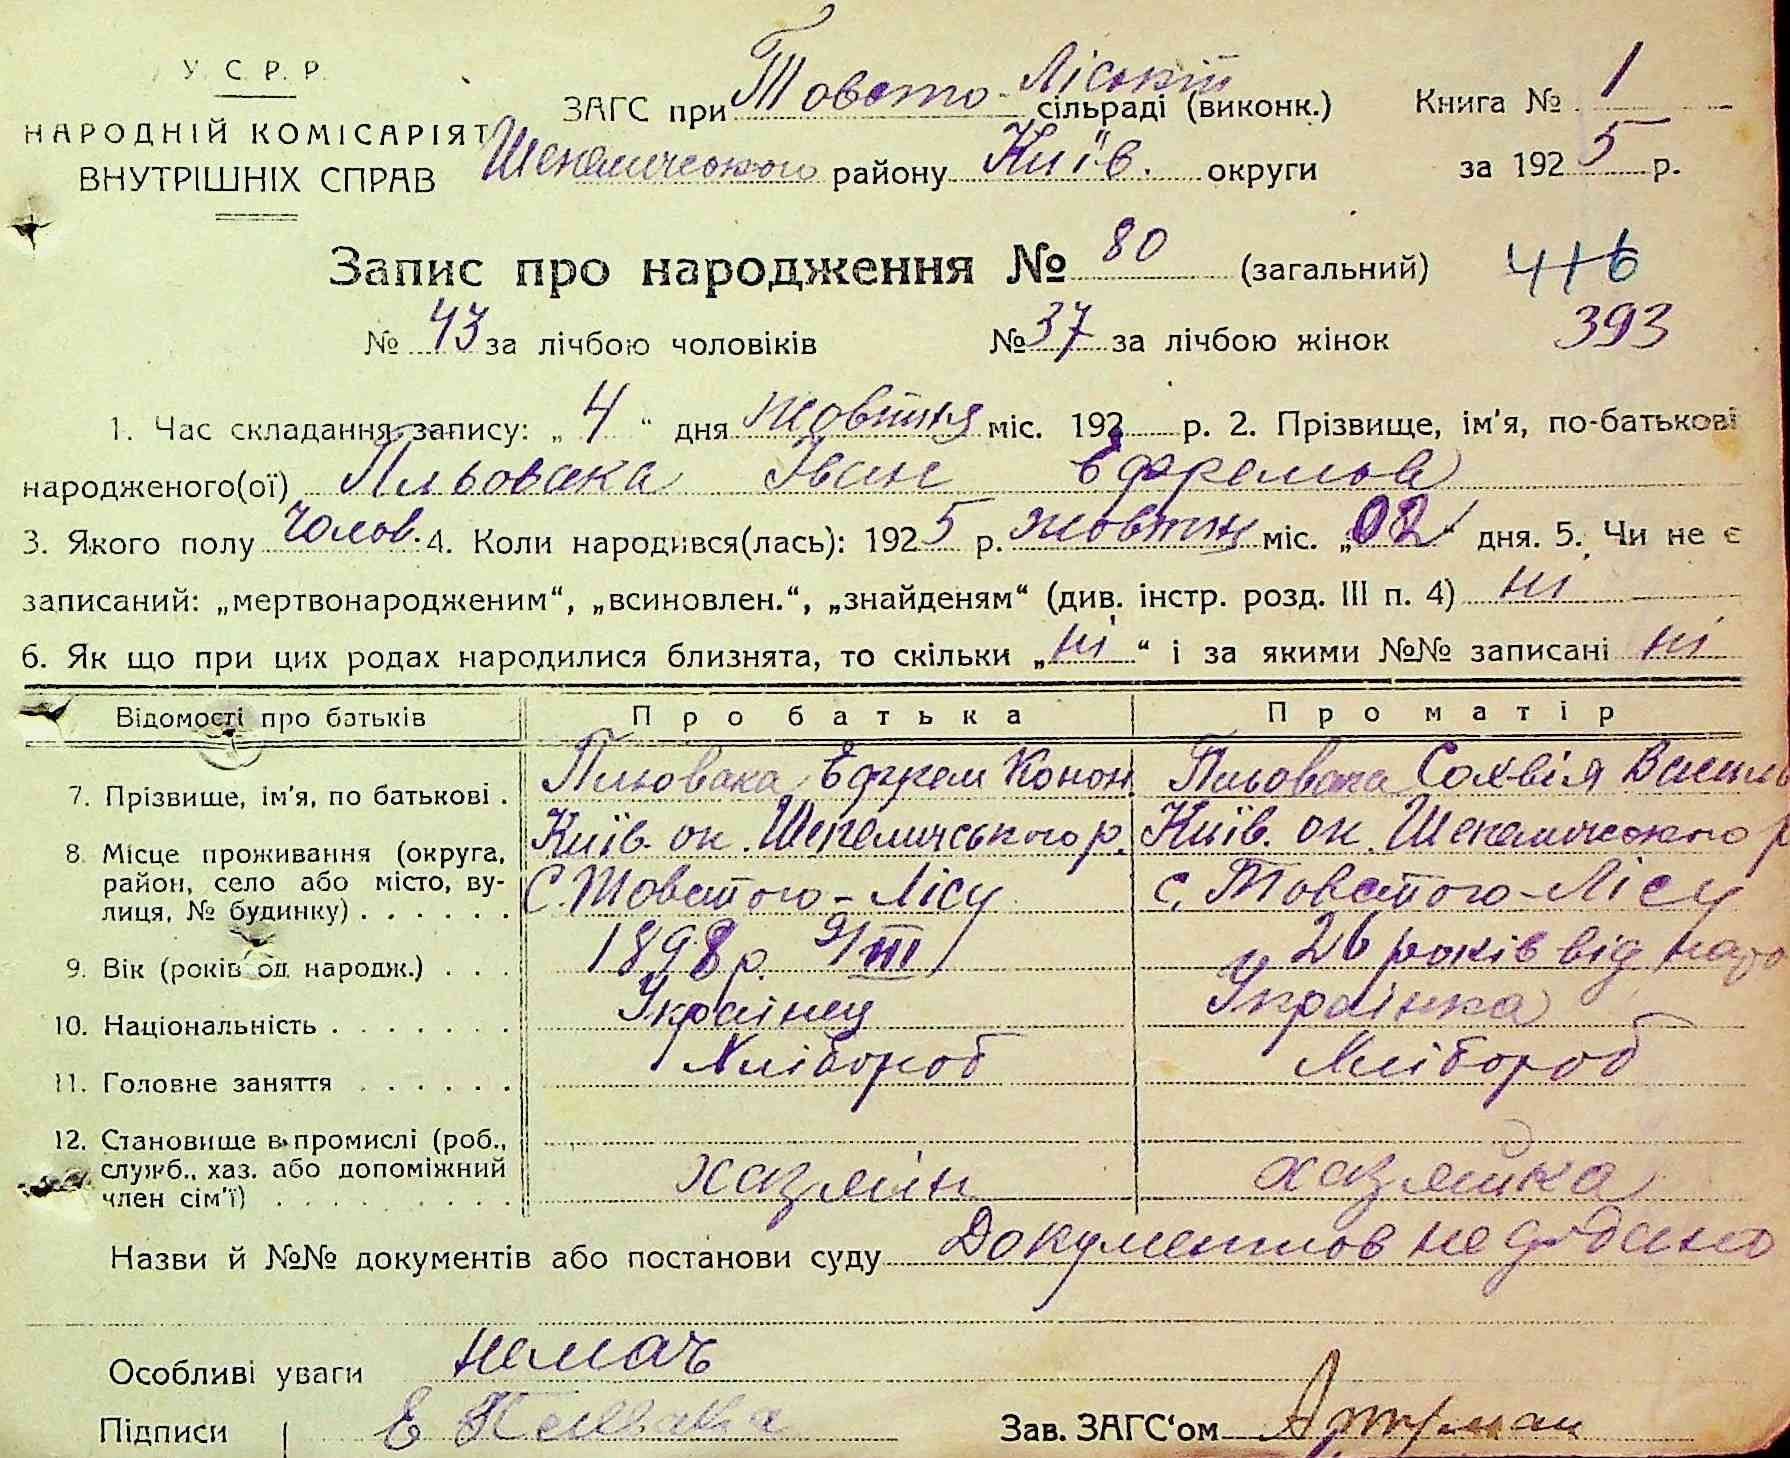 У. С. Р. Р.
НАРОДНІЙ КОМІСАРІЯТ
ВНУТРІШНІХ СПРАВ
ЗАГС при Товсто-Ліській сільраді (виконк.)
Шепелического району Київ. округи
Книга № 1
за 1925 р.
Запис про народження № 80 (загальний)
416
№ 43 за лічбою чоловіків № 37 за лічбою жінок
393
1. Час складання запису: „4“ дня жовтня міс. 192 р. 2. Прізвище, ім'я, по-батькові
народженого(ої) Пльовака Іван Ефремов
3. Якого полу чолов. 4. Коли народився(лась): 1925 р. жовтня міс. „02“ дня. 5. Чи не є
записаний: „мертвонародженим“, „всиновлен.“, „знайденям“ (див. інстр. розд. III п. 4) ні
6. Як що при цих родах народилися близнята, то скільки „ні“ і за якими №№ записані ні
Відомості про батьків Про батька Про матір
7. Прізвище, ім'я, по батькові . Пльовака Ефрем Конон. Пльовака Солвія Василь
8. Місце проживання (округа, район, село або місто, вулиця, № будинку) . . . . . .
Київ. ок. Шепеличського р. Київ. ок. Шепелического р
С. Товстого-Лісу с. Товстого-Лісу
9. Вік (років од народж.) . . . 1898 р. 9/III 26 років від наро
10. Національність . . . . . . . Українец Українка
11. Головне заняття . . . . . . Хлібороб Хлібороб
12. Становище в промислі (роб., служб., хаз. або допоміжний член сім'ї) . . . . . . . . .
хазяїн хазяйка
Назви й №№ документів або постанови суду Документов не додано
Особливі уваги немач
Підписи Е Пльовака Зав. ЗАГС'ом